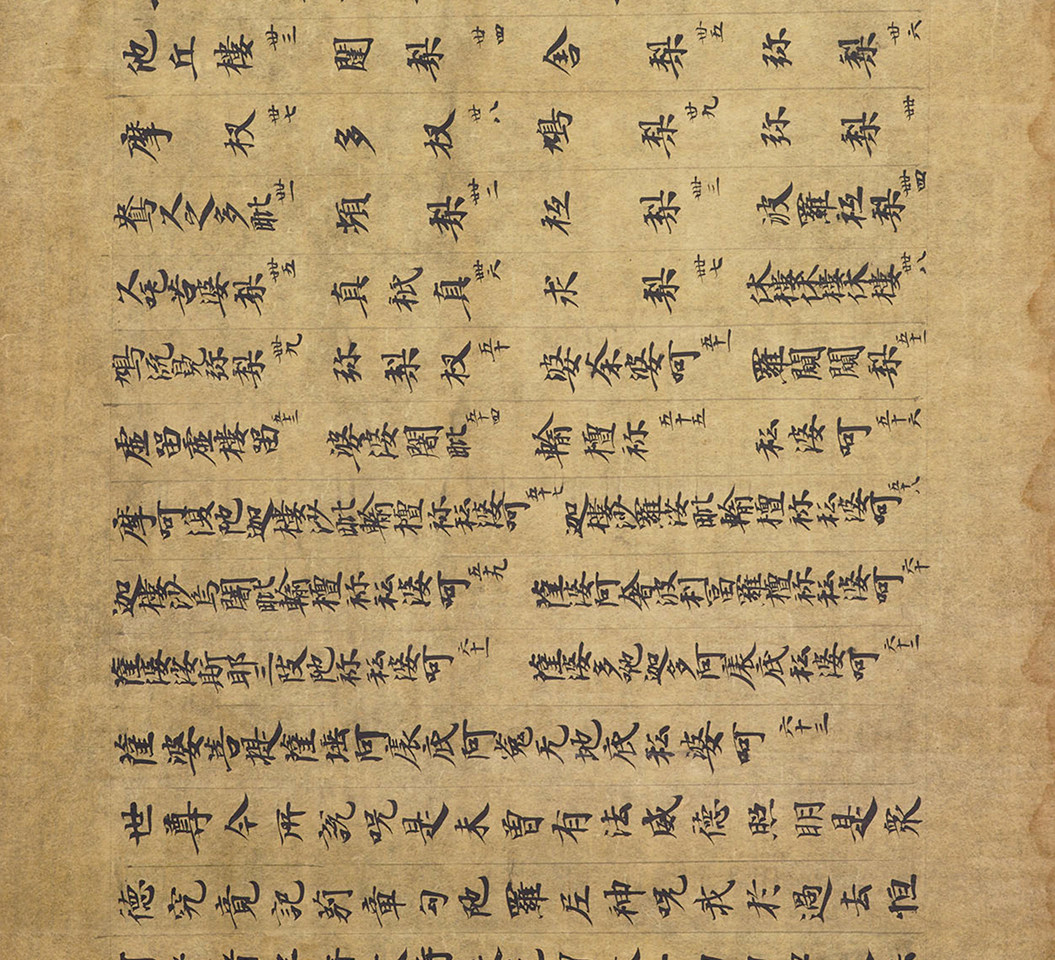 他丘樓卅三閮梨卅四舍梨卅五弥梨卅六
摩杈卅七多杈卅八鳩梨卅九弥梨卌
鴦久之多毗卌一頞梨卌二梨卌三波羅梨卌四
久咤苦婆梨卌五真祇真卌六求梨卌七休樓休樓休樓卌八
鳩流晃弥梨卌九弥梨杈五十婆余婆呵五十一羅闍闍梨五十二
虛留虛樓留五十三婆婆闍毗五十四輸檀祢五十五私婆呵五十六
摩呵復陁迦樓沙毗輸檀祢私婆呵五十七迦樓沙羅婆毗輸檀祢私婆呵五十八
迦樓沙烏闍毗輸檀祢私婆呵五十九薩婆阿奢波利富羅檀祢私婆呵六十
薩婆婆斯耶三陂陁祢私婆呵六十一薩婆多咃迦多阿底私婆呵六十二
薩婆菩提薩埵阿底阿㝹无地底私婆呵六十三
世尊今所說呪是未曾有法威德照明是衆
德究竟記莂章句陁羅尼神呪我於過去恒